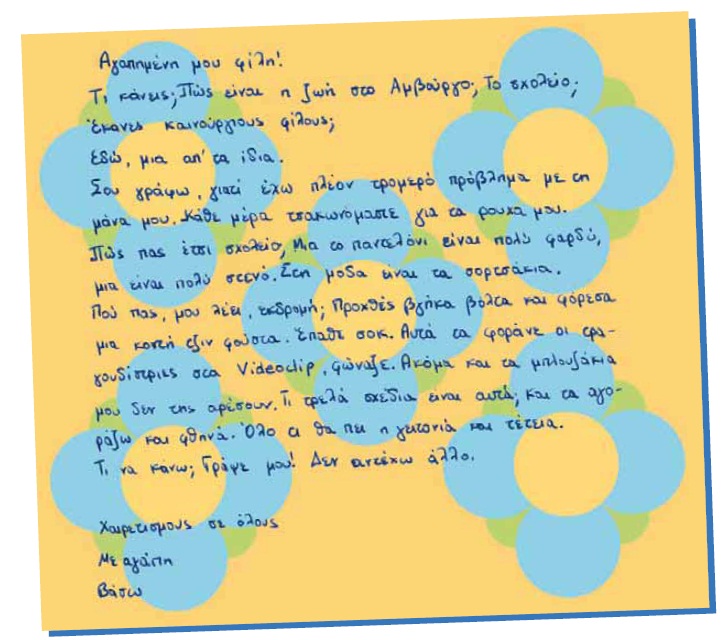 Αγαπημένη μου φίλη!
Τι κάνεις; Πώς είναι η ζωή στο Αμβούργο; Το σχολείο;
Έκανες καινούργιους φίλους;
Εδώ, μια απ' τα ίδια.
Σου γράφω, γιατί έχω πλέον τρομερό πρόβλημα με τη
μάνα μου. Κάθε μέρα τσακωνόμαστε για τα ρουχα μου.
Πώς πας έτσι σχολείο; Μια το παντελόνι είναι πολύ φαρδύ,
μια είναι πολύ στενό. Στη μοδα είναι τα σορτσάκια.
Πού πας, μου λέει, εκδρομή; Προχθές βγήκα βόλτα και φόρεσα
μια κοντή τζιν φούστα. Έπαθε σοκ. Αυτά τα φοράνε οι τρα-
γουδίστριες στα Videoclip, φώναξε. Ακόμα και τα μπλουζάκια
μου δεν της αρέσουν. Τι τρελά σχέδια είναι αυτά; Και τα αγο-
ράζω και φθηνά. Όλο τι θα πει η γειτονιά και τέτεια.
Τι να κάνω; Γράψε μου! Δεν αντέχω άλλο.
Χαιρετισμους σε όλους
Με αγάπη
Βάσω